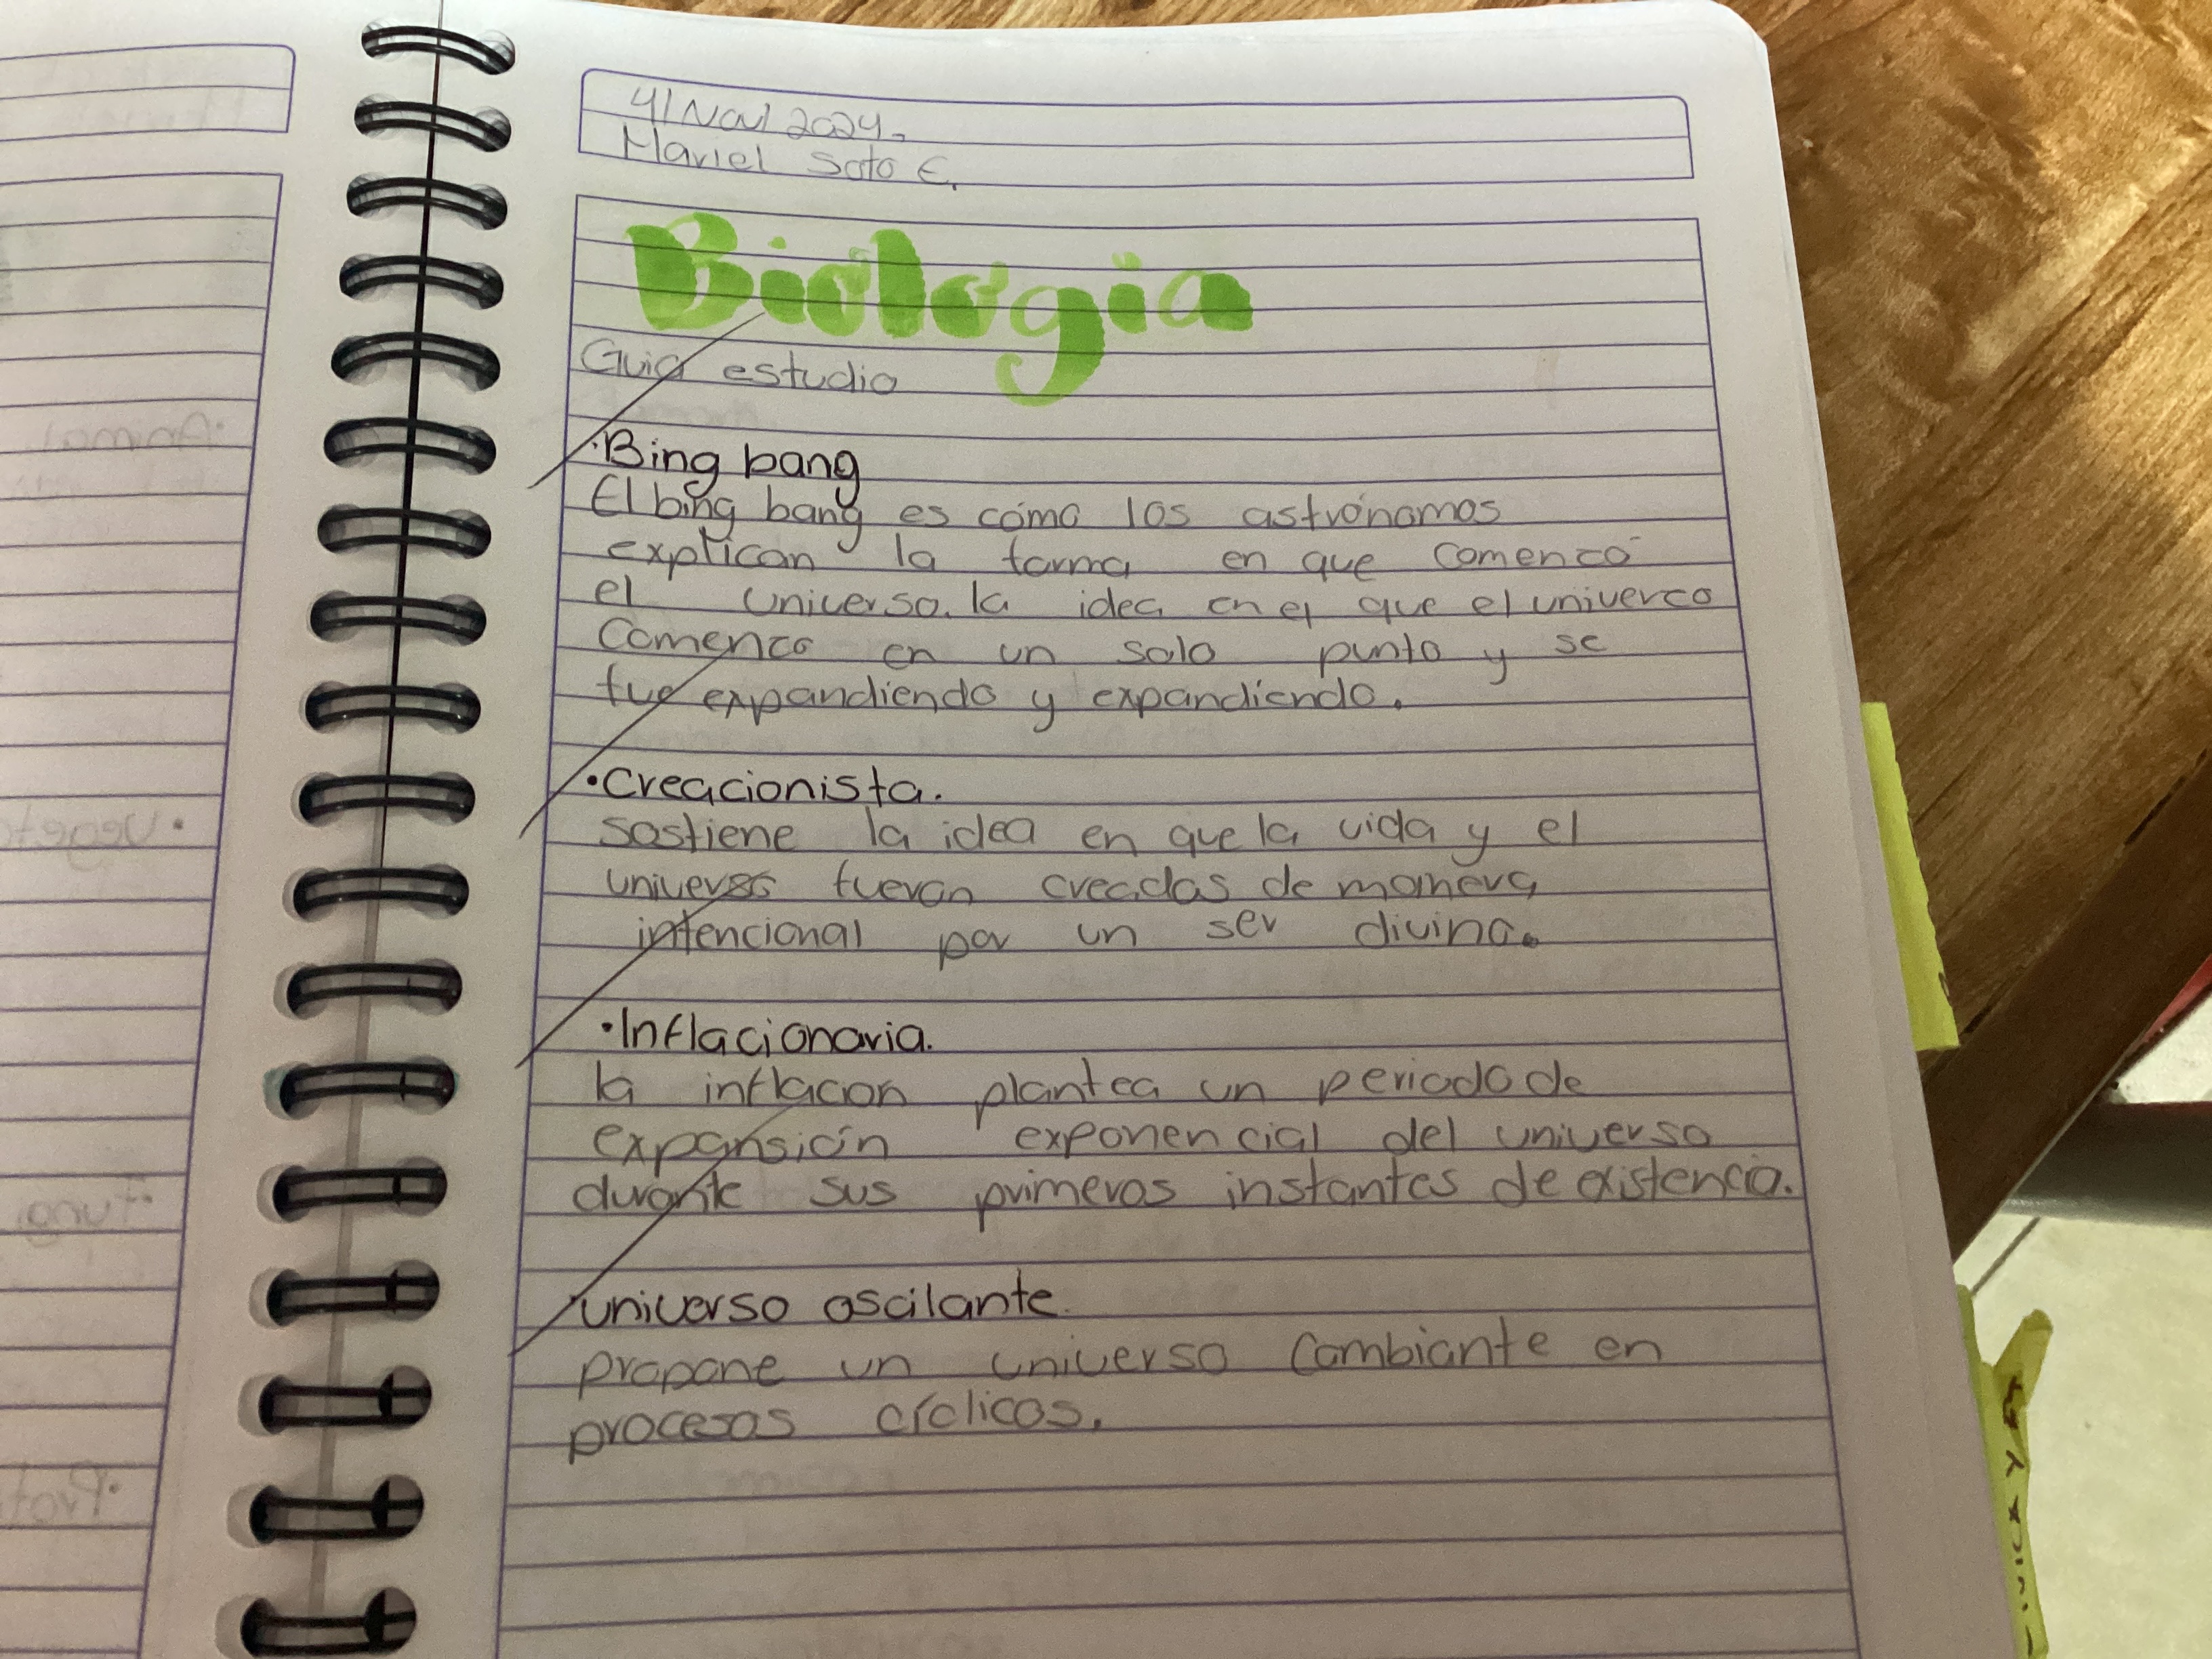 4/Nov/2024.
Mariel Soto E.
Biología
Guia estudio
·Bing bang
El bing bang es cómo los astrónomos
explican la forma en que comenzó
el universo. la idea en el que el univerco
comenzo en un solo punto y se
fue expandiendo y expandiendo.
·Creacionista.
sostiene la idea en que la vida y el
universo fueron creadas de manera
intencional por un ser divino.
·Inflacionaria.
la inflacion plantea un periodo de
expansión exponencial del universo
durante sus primeros instantes de existencia.
·universo oscilante.
propone un universo cambiante en
procesos cíclicos.
·Animal
·Veget
·Fungi
·Prot